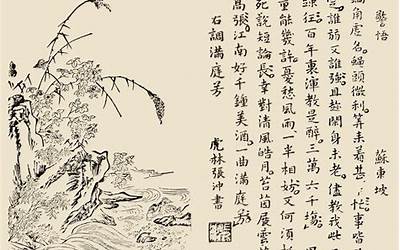 警悟 蘇東坡
蝸角虛名蠅頭微利算來着甚干忙事皆
定誰弱又誰強且趁閒身未老儘教我些
疎狂百年裏渾教是醉三萬六千場
量能幾許憂愁風雨一半相妨又何須
死說短論長幸對清風皓月苔茵展雲
高張江南好千鍾美酒一曲滿庭芳
右調滿庭芳 虎林張沖書